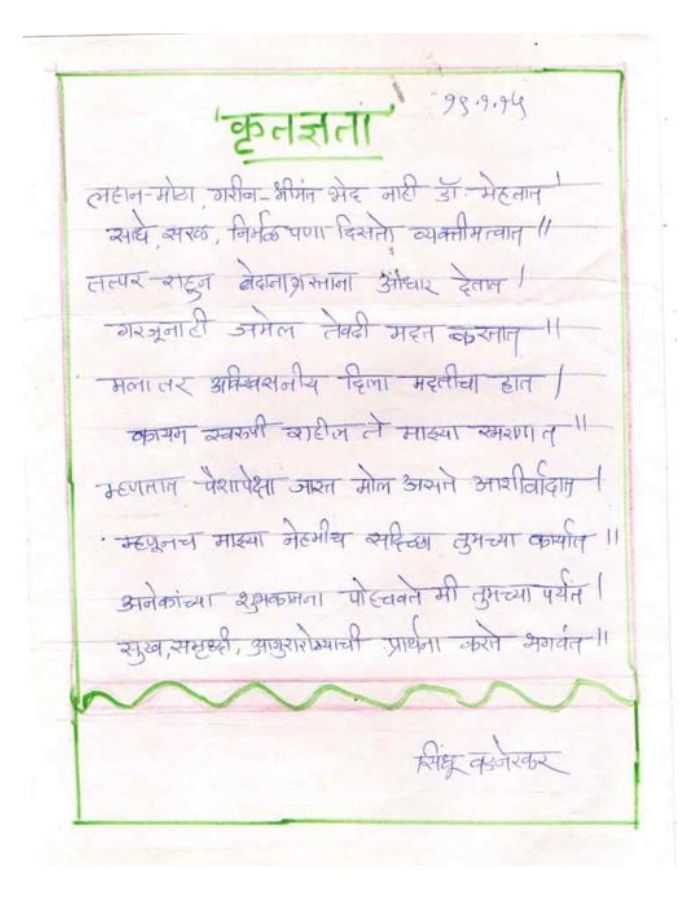 'कृतज्ञता'
१९.१.१५
लहान-मोठा, गरीब-श्रीमंत भेद नाही डॉ. मेहतात ।
साधे, सरळ, निर्मळ पणा दिसतो व्यक्तीमत्वात ॥
तत्पर राहून वेदनाग्रस्ताना आधार देतात ।
गरजूनाही जमेल तेवढी मदत करतात ॥
मला तर अविश्वसनीय दिला मदतीचा हात ।
कायम स्वरूपी राहील ते माझ्या स्मरणात ॥
म्हणतात पैशापेक्षा जास्त मोल असते आशीर्वादात ।
म्हणूनच माझ्या नेहमीच सदिच्छा तुमच्या कार्यात ॥
अनेकांच्या शुभकामना पोहचवते मी तुमच्या पर्यंत ।
सुख, समृध्दी, आयुरारोग्याची प्रार्थना करते भगवंत ॥
सिंधू वडनेरकर